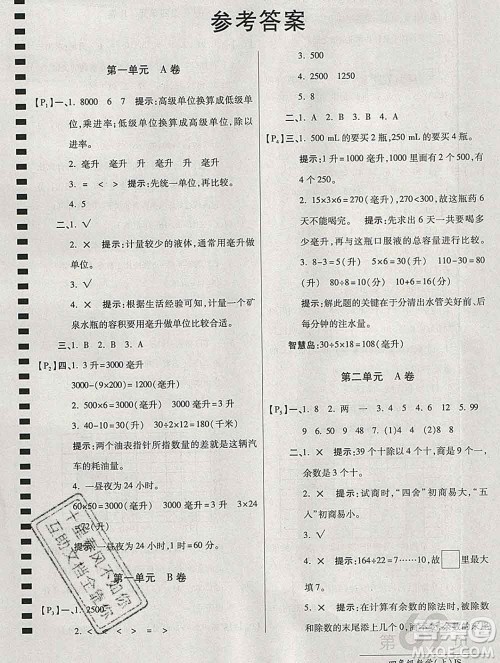 参考答案
第一单元 A卷
【P₁】一、1. 8000 6 7 提示：高级单位换算成低级单
位，乘进率；低级单位换算成高级单位，除以
进率。
2. 毫升 升 毫升 升 毫升
3. = < > 提示：先统一单位，再比较。
4. 5
二、1. √
2. × 提示：计量较少的液体，通常用毫升做
单位。
3. √
4. × 提示：根据生活经验可知，一个矿
泉水瓶的容积要用毫升作单位比较合适。
【P₂】四、1. 3升=3000毫升
3000-(9×200)=1200(毫升)
2. 500×6=3000(毫升) 3000毫升=3升
3. 40-10=30(升) 30÷6=5(升)
提示：两个油表指针所指数量的差就是这辆汽
车的耗油量。
4. 一昼夜为24小时。
60×50=3000(毫升) 3000毫升=3升 3×24
=72(升)
提示：一昼夜为24小时，1时=60分。
第一单元 B卷
【P₃】一、1. 2500
2. < < < > = >
3. 500
4. 2500 1250
5. 8
二、1. A 2. B 3. B 4. A
【P₄】三、1. 500 mL的要买2瓶，270 mL的要买4瓶。
提示：1升=1000毫升，1000里面有2个500，
有4个250。
2. 15×3×6=270(毫升)，270<300，故这瓶药6
天不能喝完。 提示：先求出6天一共要喝多
少毫升，再与这瓶口服液的总容量进行比较。
3. 8-3=5(升) 5×16=80(升) 10-2=
8(升) 80÷8=10(分)
提示：解此题的关键在于分清出水管关好前、后
每分钟的注水量。
智慧岛：30÷5×18=108(毫升)
第二单元 A卷
【P₅】一、1. 8 2. 两 一 3. 2 4. 6 5. 12 6. 59
99 7. 9 8. > < = < 9. 4 50
二、1. × 提示：39个十除以4个十，商是9个一，
余数是3个十。
2. √ 提示：试商时，“四舍”初商易大，“五
入”初商易小。
3. × 提示：164÷22=7……10，故□里最大
填7。
4. √ 提示：在计算有余数的除法时，被除数
和除数的末尾添上几个0，余数的末尾也要
四年级数学(上)JS
十年春风不如你
互助文档全靠你